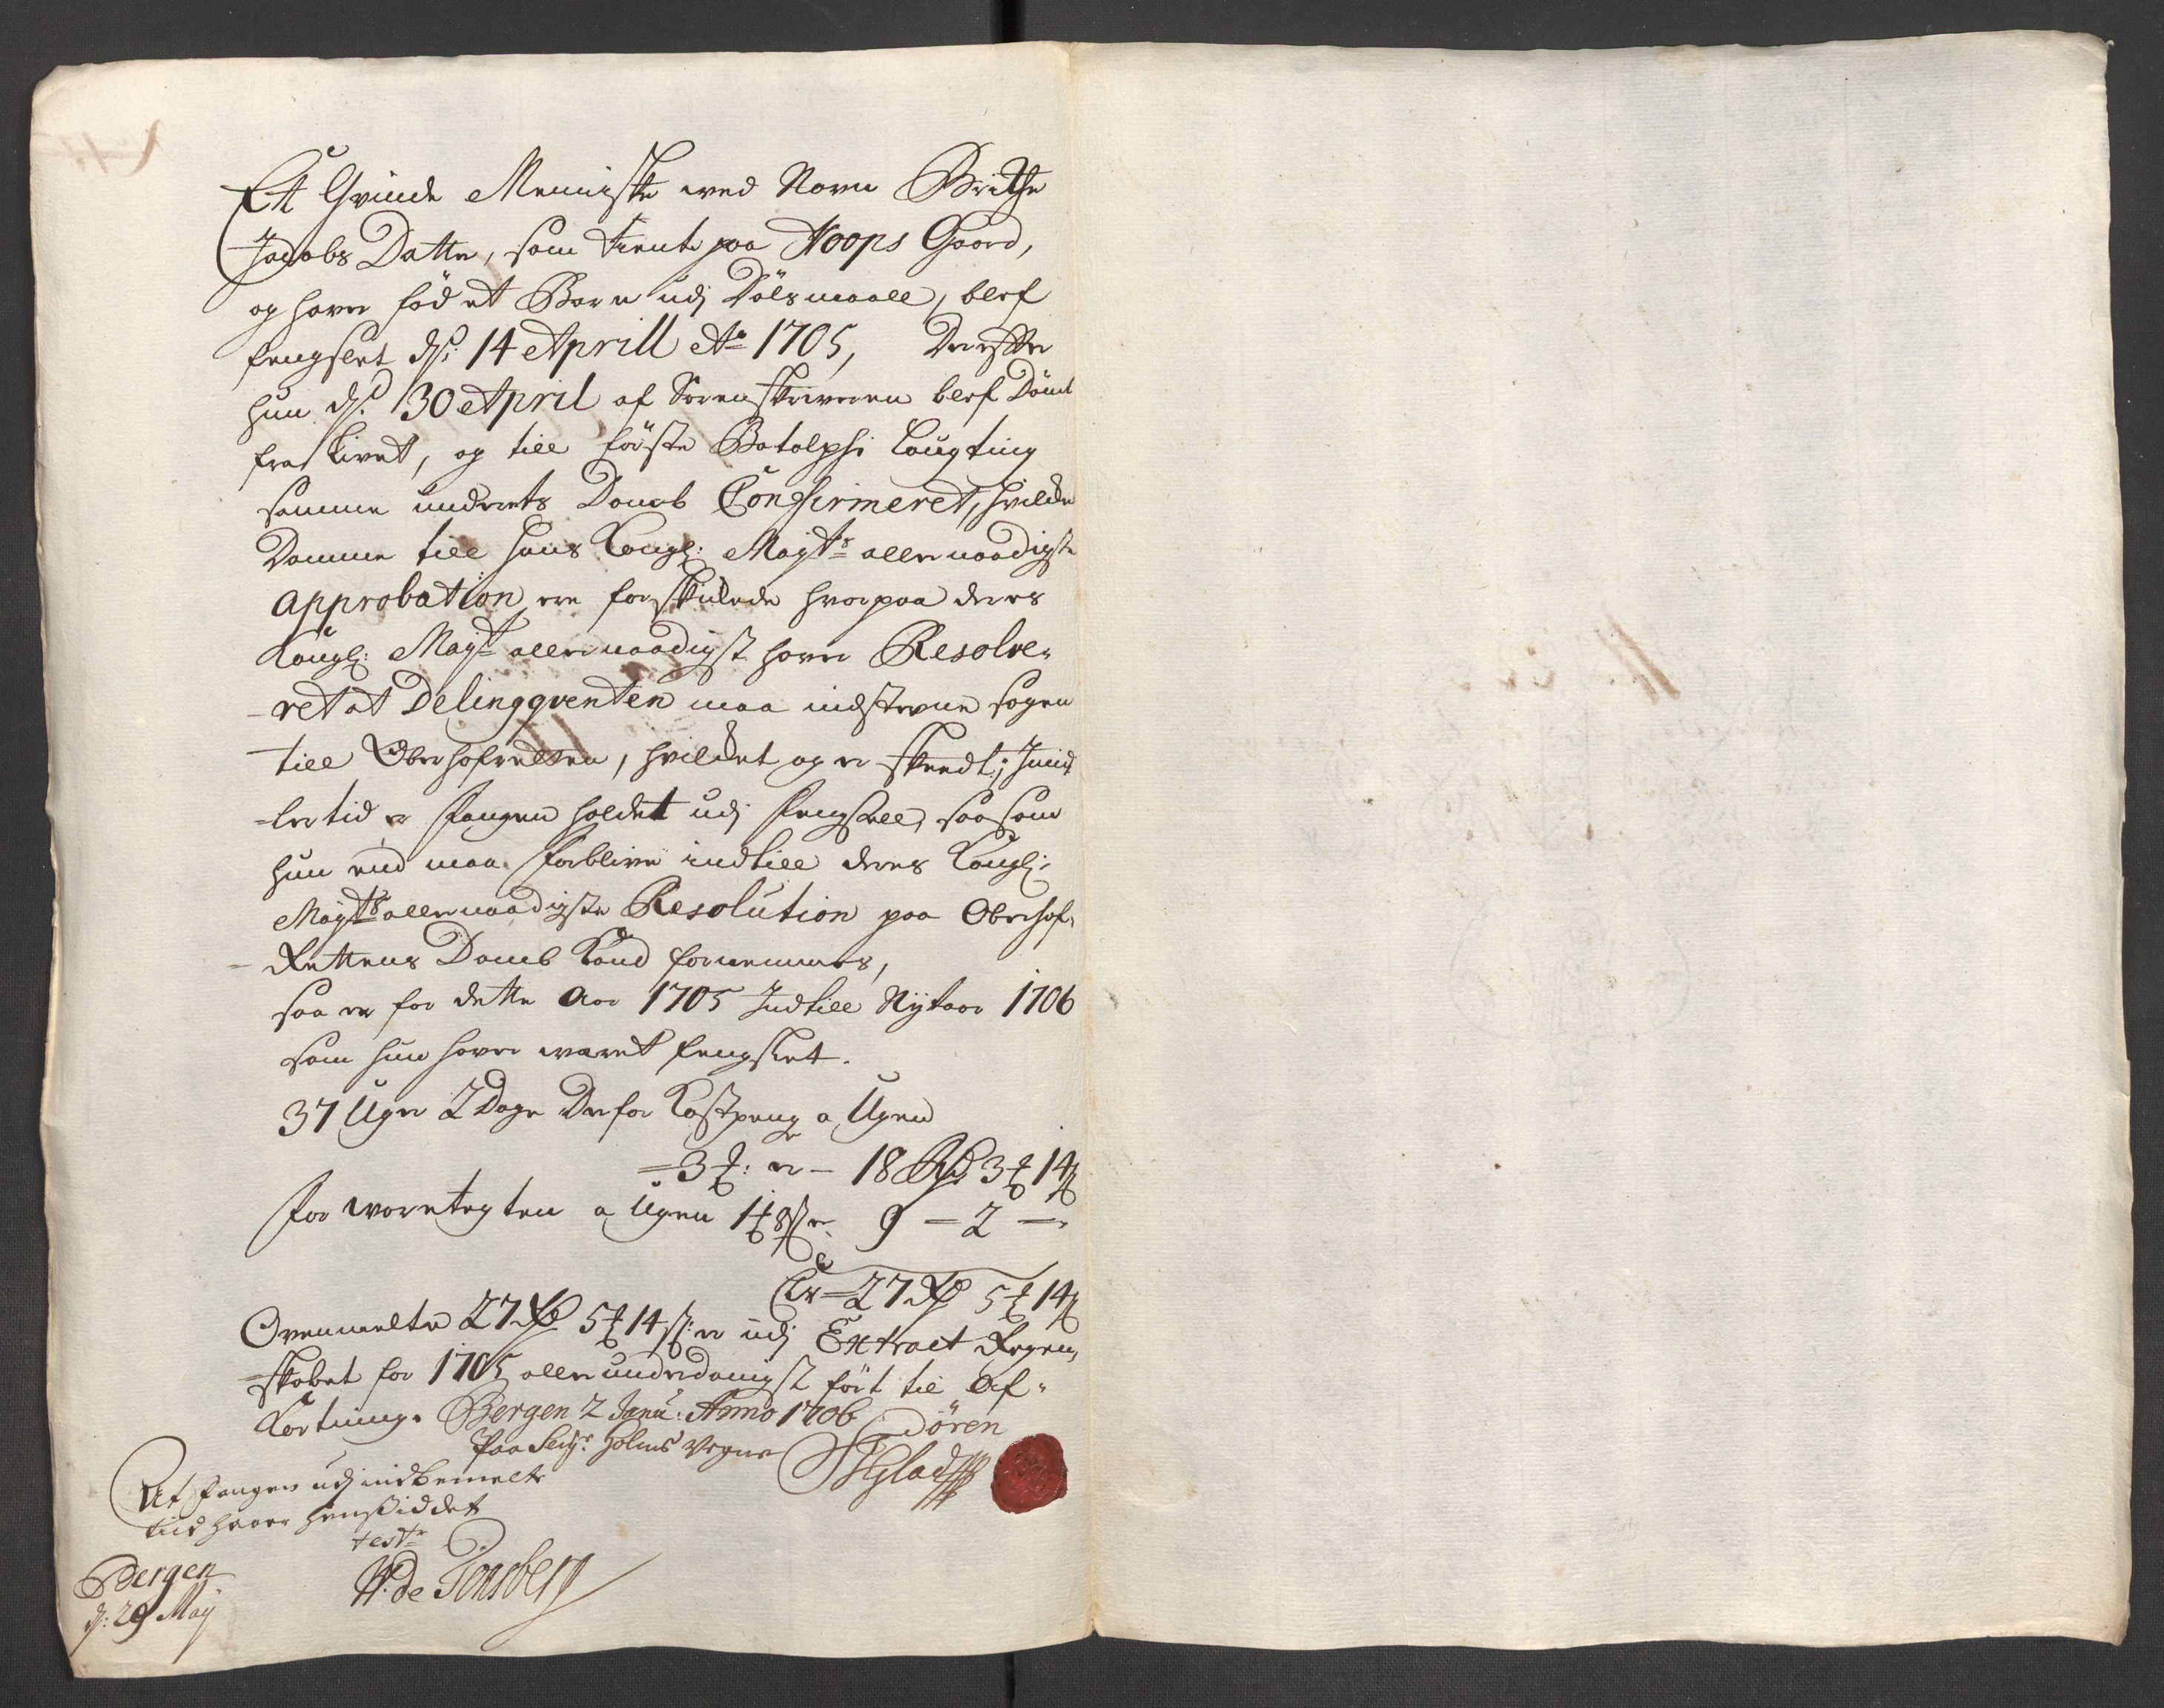 Et Qvinde Menniske wed Navn Brithe
Jacobs Datter, som tient paa Hoops Gaard,
og haver föd et Barn udj Dölsmaall, blef
fengslet dj: 14 Aprill Ao 1705, Derefter
hun dj: 30 April af Sorenskriveren blef Dömt
fra Livet, og till förste Botolphi Laugting
samme underrets Domb Confirmeret, hvilke
Domme till Hans Kongl: Mayts allernaadigste
Approbation ere forskikede hvorpaa deres
Kongl: Mayt allernaadigst haver Resolve-
ret at Delinqqventen maa indstevne sagen
till Oberhofretten, hvilket og er skeedt; Imid
lertid er fangen holdet udj fengsell, saasom
hun end maa forblive indtill deres Kongl:
Mayts allernaadigste Resolution paa Oberhof-
Rettens Domb Kand fornemmes,
saa er for dette Aar 1705 Indtill Nytaar 1706
som hun haver wæret fengslet.
37 Uger 2 Dage Derfor Kostpenge a Ugen
3 : er - 18 Rd 3 14
for waretegten a Ugen 1 8 s er 9 - 2 -
Er = 27 Rd 5 14
Ovenmelte 27 Rd 5 14 s: er udj Extract Regen-
skabet for 1705 allerunderdanigst fört til Af-
kortning. Bergen 2 Janu: Anno 1706
Paa Holms Vegne Sören
Schlad
At fangen udj indbemelte
tiid haver hensiddet
test
Bergen
d: 29 May
W: de Tönsberg